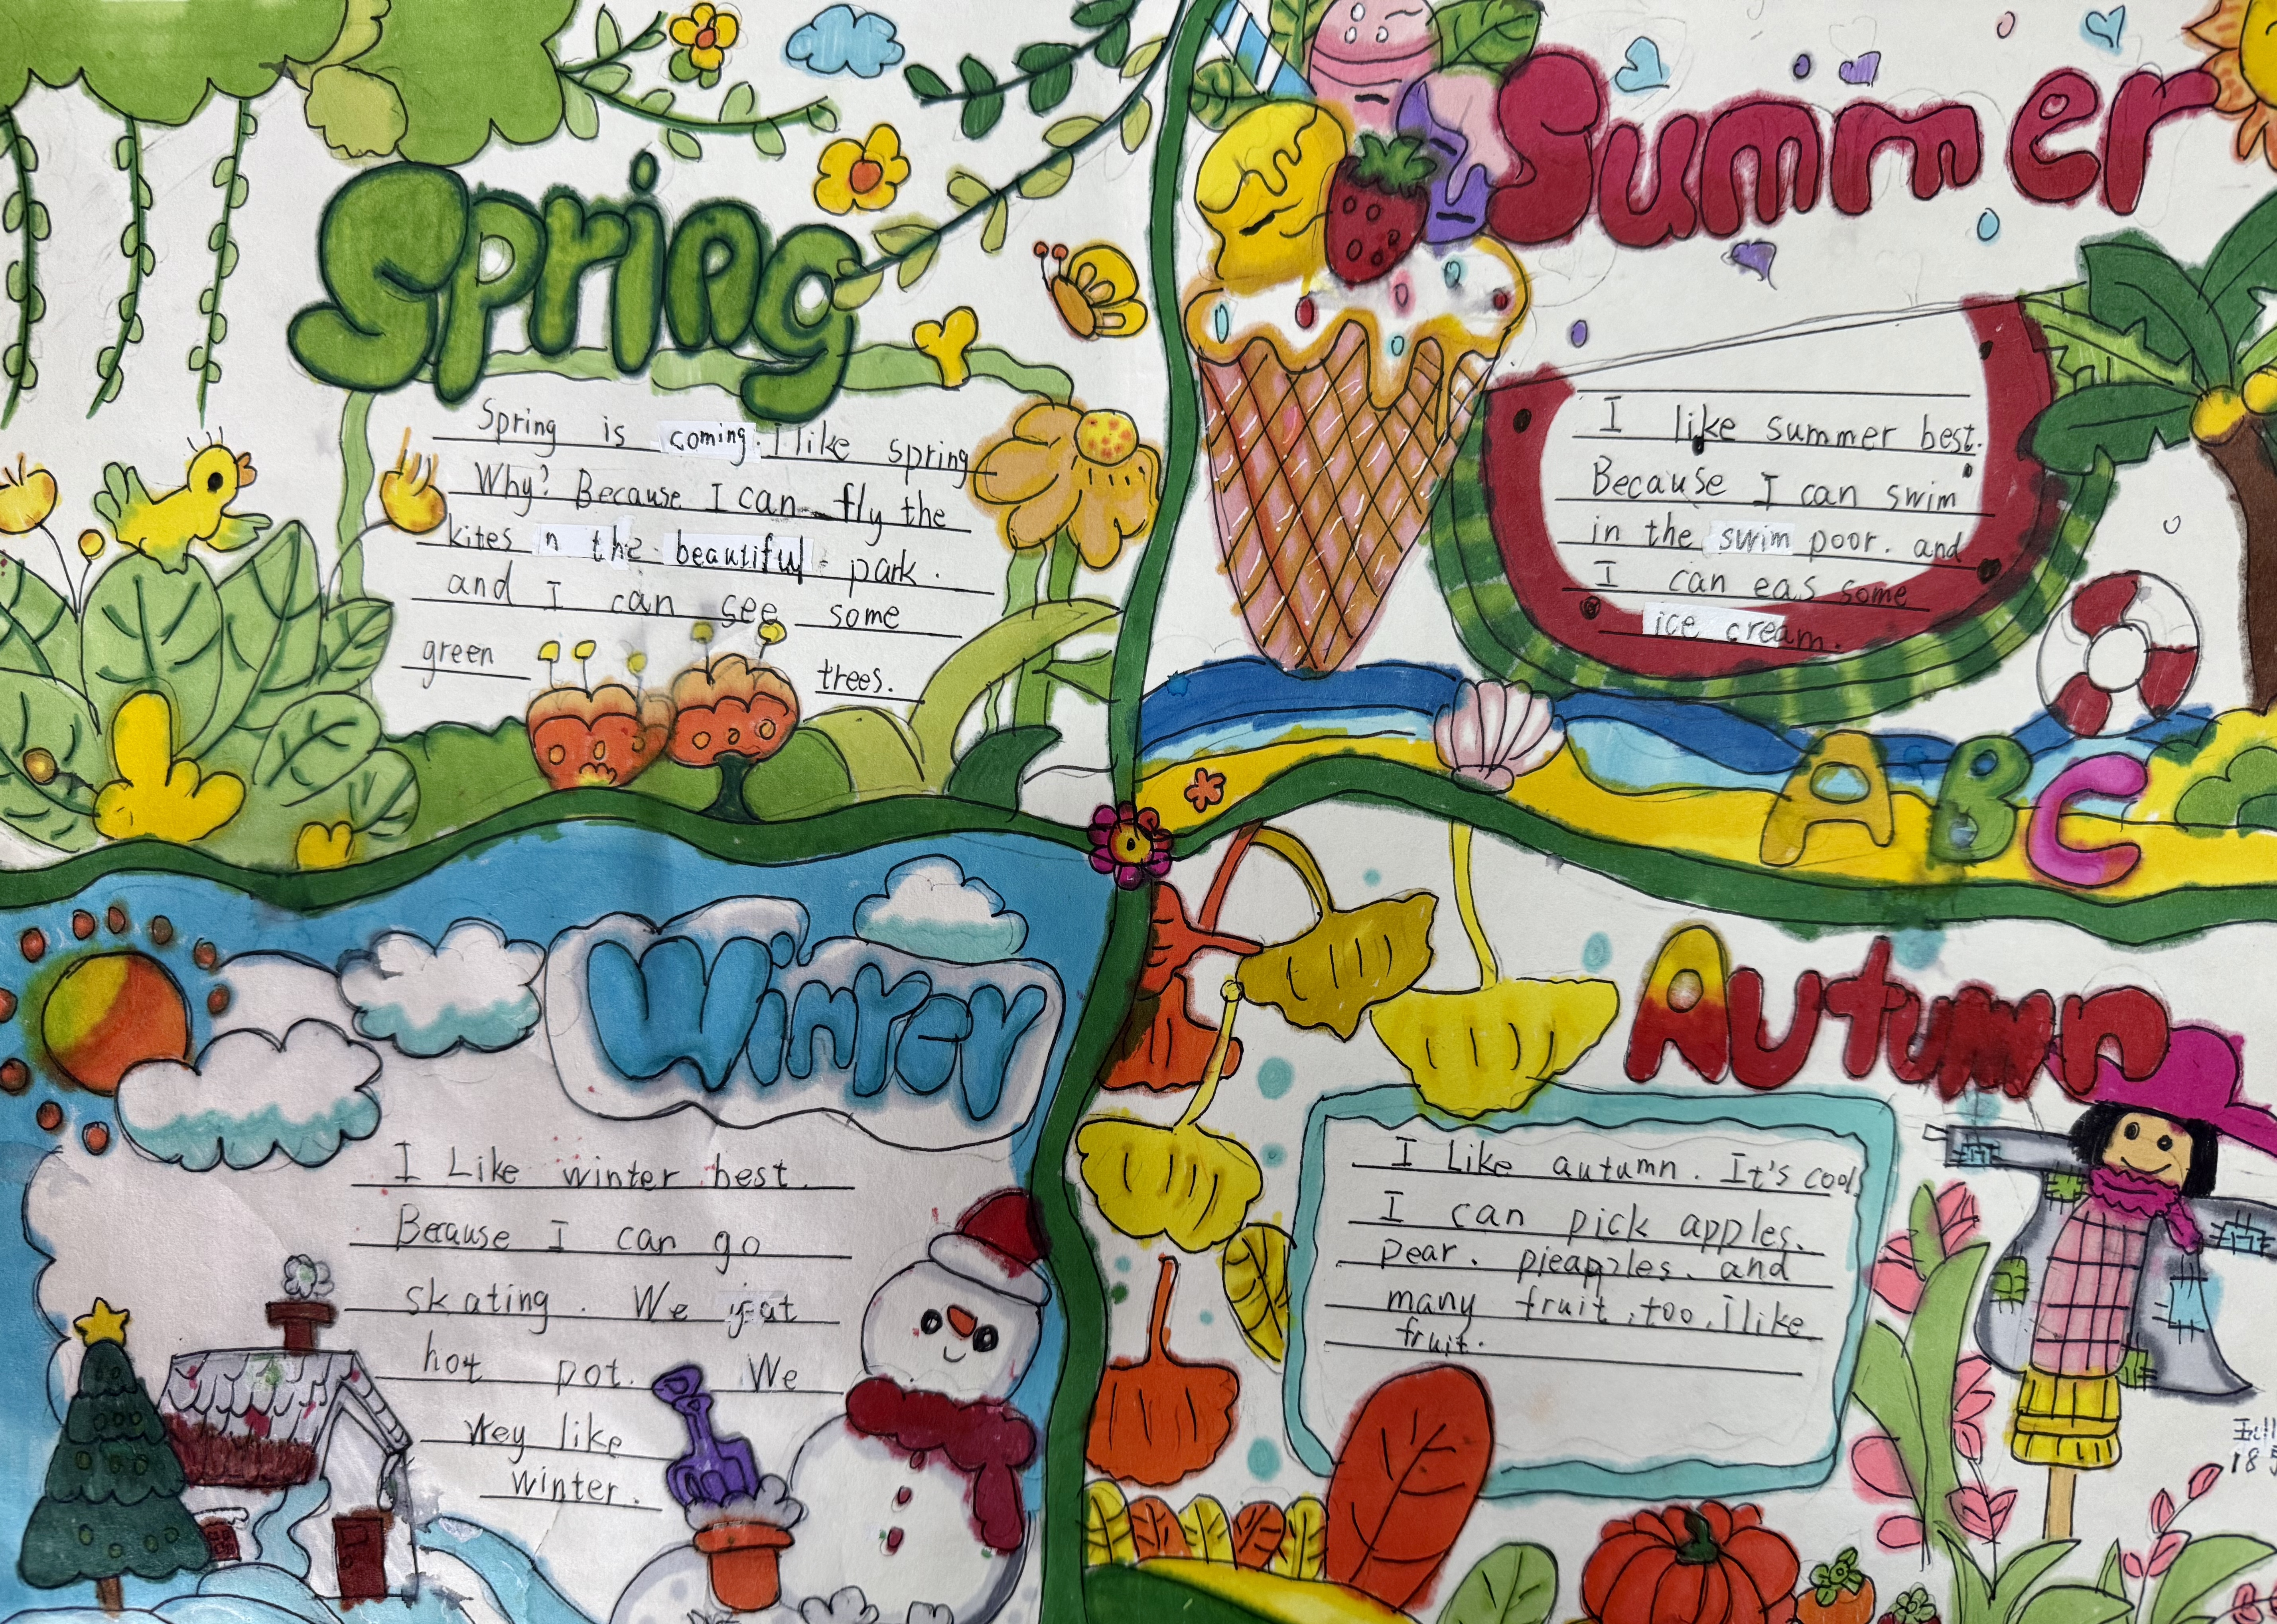 Spring
Spring is coming. I like spring
Why? Because I can fly the
kites n the beautiful park.
and I can see some
green trees.
Summer
I like summer best.
Because I can swim
in the swim poor. and
I can eas some
ice cream.
ABC
Winter
I Like winter best.
Because I can go
skating. We eat
hot pot. We
vey like
winter.
Autumn
I Like autumn. It's cool.
I can pick apples.
pear. pieapples. and
many fruit, too, I like
fruit.
18号